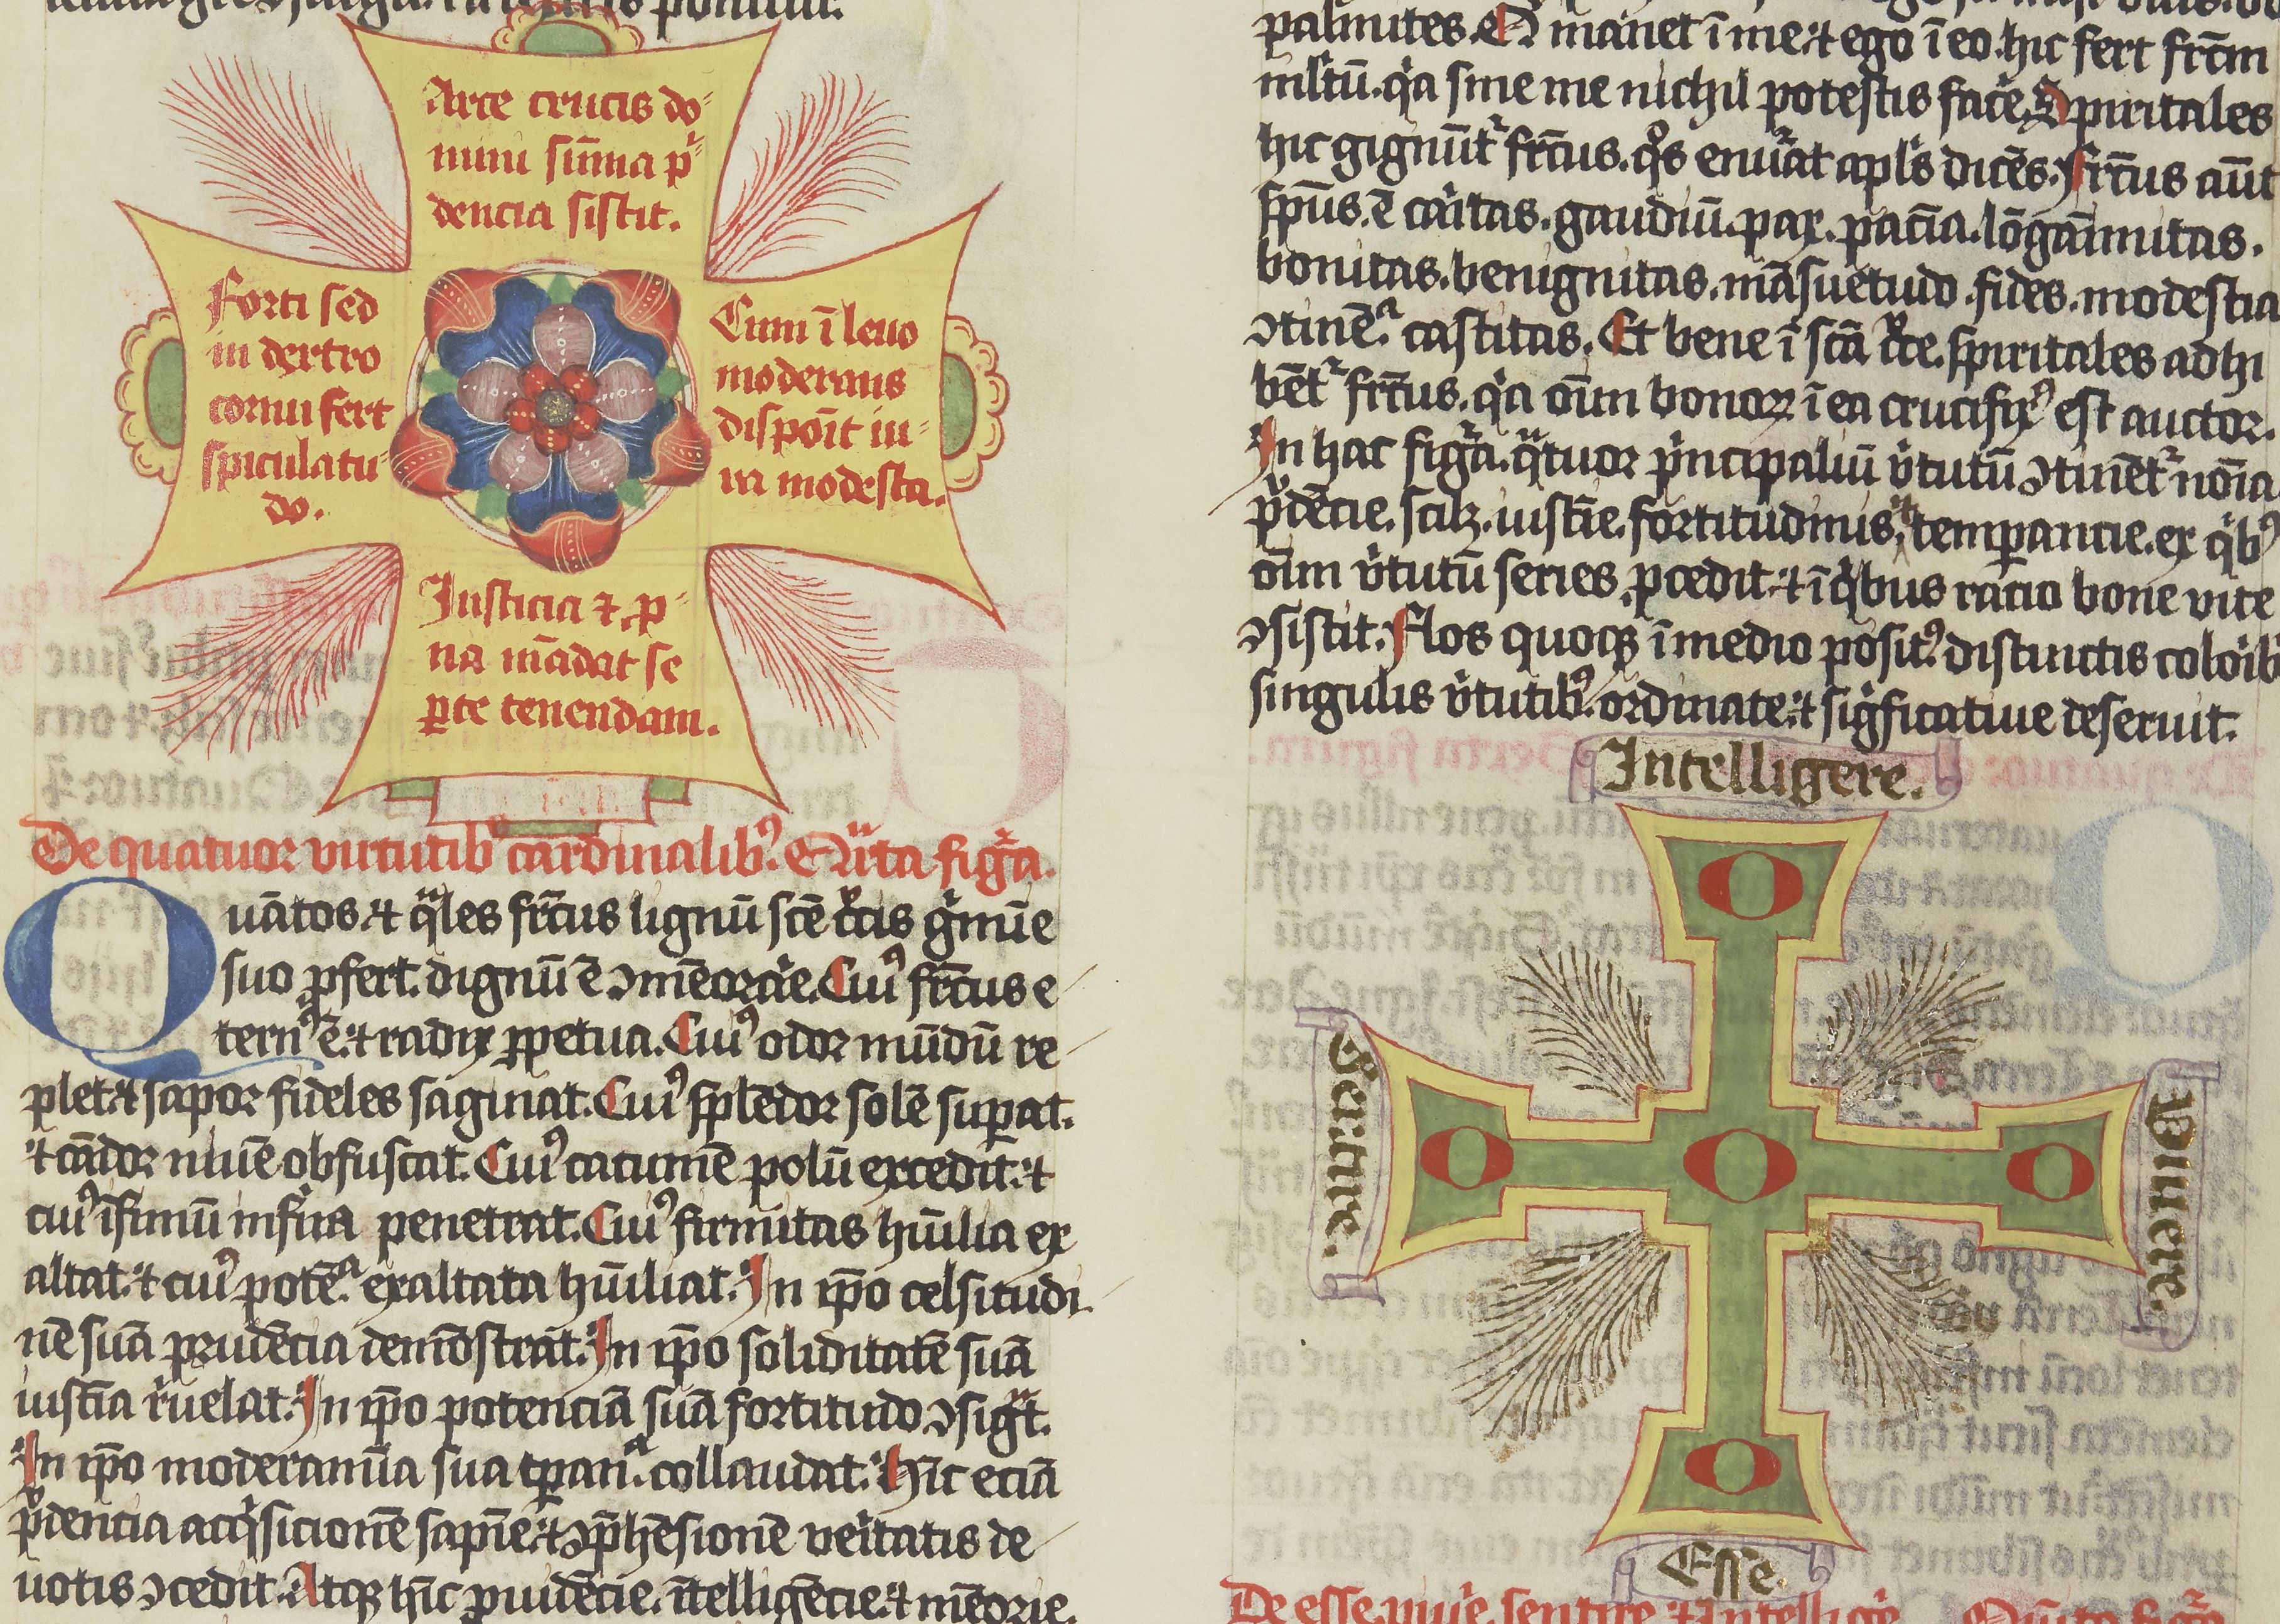 Arce crucis do
mini sūma p̄
dencia sistit.
Forti sed
in dextro
cornu fert
spicula tu
do.
Cum ī leuo
moderans
dispoīt iu
ra modesta.
Iusticia ⁊ p
na mādat se
ꝑte tenendam.
De quatuor virtutibꝰ cardinalibꝰ. Qͣrta figͣa.
Quātos ⁊ qͣles frc̄us lignū sc̄e crͨis gͥmīe
suo ꝓfert. dignū ē ꝯmēorāe. Cuiꝰ frc̄us e
ternꝰ ē. ⁊ radix ꝑpetua. Cuiꝰ odor mūdū re
plet. ⁊ sapor fideles saginat. Cuiꝰ splēdor solē suꝑat.
⁊ cādor niuē obfuscat. Cuiꝰ cacumē polū excedit. ⁊
cuiꝰ īfimū infīa penetrat. Cuiꝰ firmitas hūilia ex
altat. ⁊ cuiꝰ potēͣ. exaltata hūiliat. In ip̄o celsitudi
nē suā prudēcia demōstrat. In ip̄o soliditatē suā
iustīa rͥuelat. In ip̄o potenciā suā fortitudo ꝯsigͣt.
In ip̄o moderamīa sua tꝑanͣ. collaudat. Hic eciā
pͮdencia acqͥsicionē sapīe. ⁊ ꝯp̄hēsionē veͥitatis de
uotis ꝯcedit. Atqꝫ hīc prudēcie. ītelligēcie. ⁊ mēorie.
palmites. Q manet ī me. ⁊ ego ī eo. hic fert frc̄m
mltū. qͥa sine me nichil potestis facͥe. Spiritales
hic gignūtͬ frc̄us. qͦs enūat apl̄s dicēs. Frc̄us aūt
sp̄us. ē caͥitas. gaudiū. pax. pacīa. lōgāimitas.
bonitas. benignitas. māsuetudo. fides. modestia
ꝯtinēͣ. castitas. Et bene ī scā crͨe. spiritales adhi
bētͬ frc̄us. qͥa oīm bonoꝝ ī ea crucifixꝰ est auctor.
In hac figͣa. qͣtuor pͥncipaliū vͥtutū ꝯtinētͬ noīa
pͮdēcie. scilꝫ. iustīe. fortitudinis. ⁊ temꝑancie. ex qͥbꝰ
oīm vͥtutū series ꝓcedit. ⁊ ī qͥbus racio bone vite
ꝯsistit. Flos quoqꝫ ī medio positꝰ. distinctis coloͥibꝰ
singulis vͥtutibꝰ. ordinate. ⁊ sigͥficatiue deseruit.
Intelligere.
O
Sentire.
O
O
O
Viuere.
O
Esse.
De esse. viuͥe. sentire ⁊ intelligͥe